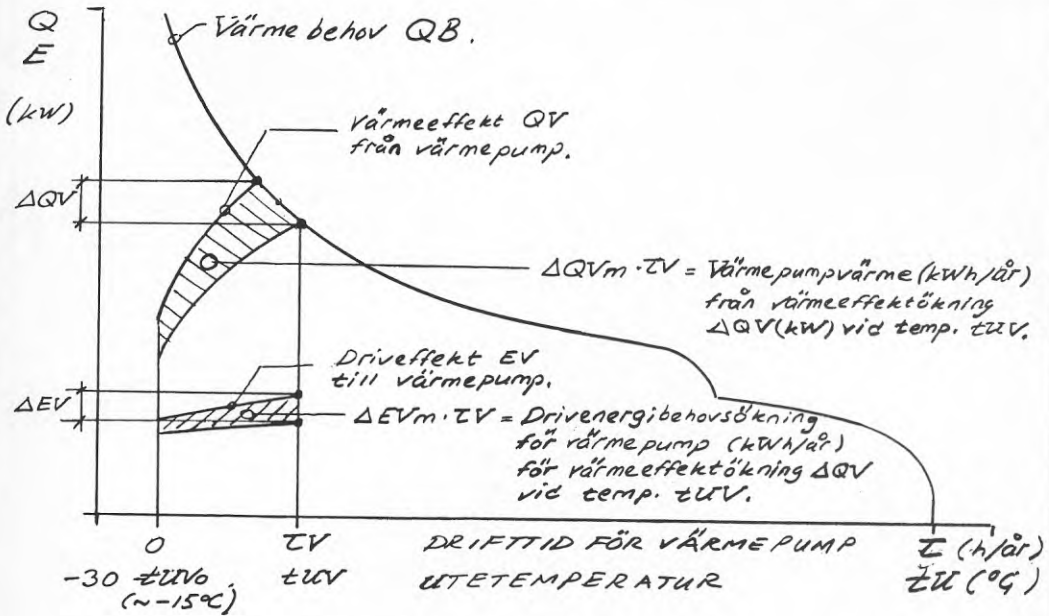 Q
E
(kW)
Värmebehov QB.
Värmeeffekt QV
från värmepump.
ΔQV
ΔQVm·τV = Värmepumpvärme (kWh/år)
från värmeeffektökning
ΔQV(kW) vid temp. tUV.
Driveffekt EV
till värmepump.
ΔEV
ΔEVm·τV = Drivenergibehovsökning
för värmepump (kWh/år)
för värmeeffektökning ΔQV
vid temp. tUV.
0 τV DRIFTTID FÖR VÄRMEPUMP τ (h/år)
-30 tUV₀ tUV UTETEMPERATUR tU (°C)
(~-15°C)